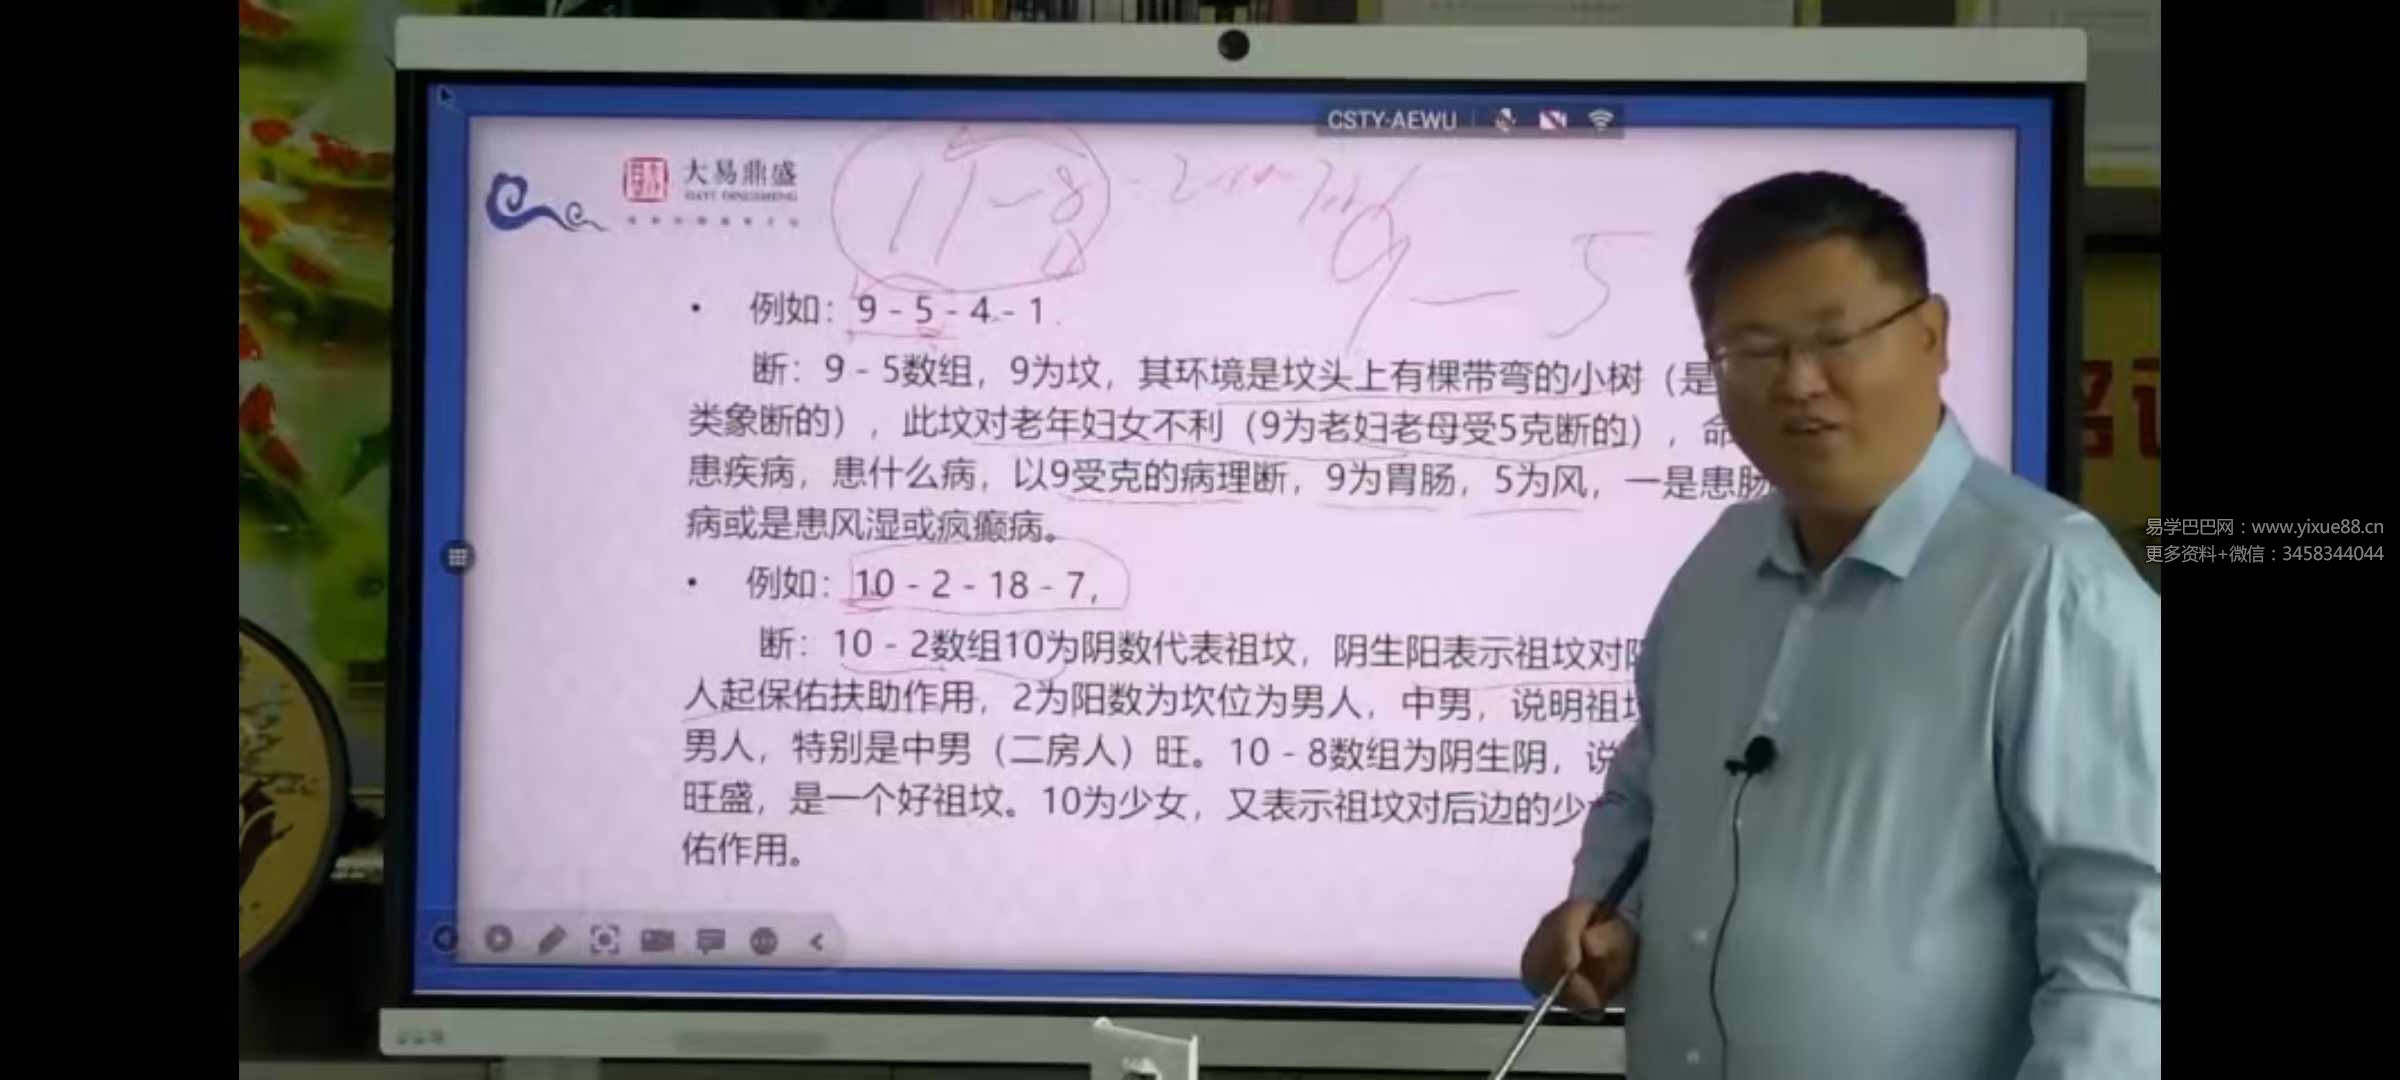 CSTY-AEWU
大易鼎盛
DAYI DINGSHENG
11-8
9 — 5
• 例如：9 - 5 - 4 - 1
断：9 - 5数组，9为坟，其环境是坟头上有棵带弯的小树（是
类象断的），此坟对老年妇女不利（9为老妇老母受5克断的），命
患疾病，患什么病，以9受克的病理断，9为胃肠，5为风，一是患肠
病或是患风湿或疯癫病。
• 例如：10 - 2 - 18 - 7，
断：10 - 2数组10为阴数代表祖坟，阴生阳表示祖坟对阳
人起保佑扶助作用，2为阳数为坎位为男人，中男，说明祖坟
男人，特别是中男（二房人）旺。10 - 8数组为阴生阴，说
旺盛，是一个好祖坟。10为少女，又表示祖坟对后边的少女
佑作用。
易学巴巴网：www.yixue88.cn
更多资料+微信：3458344044